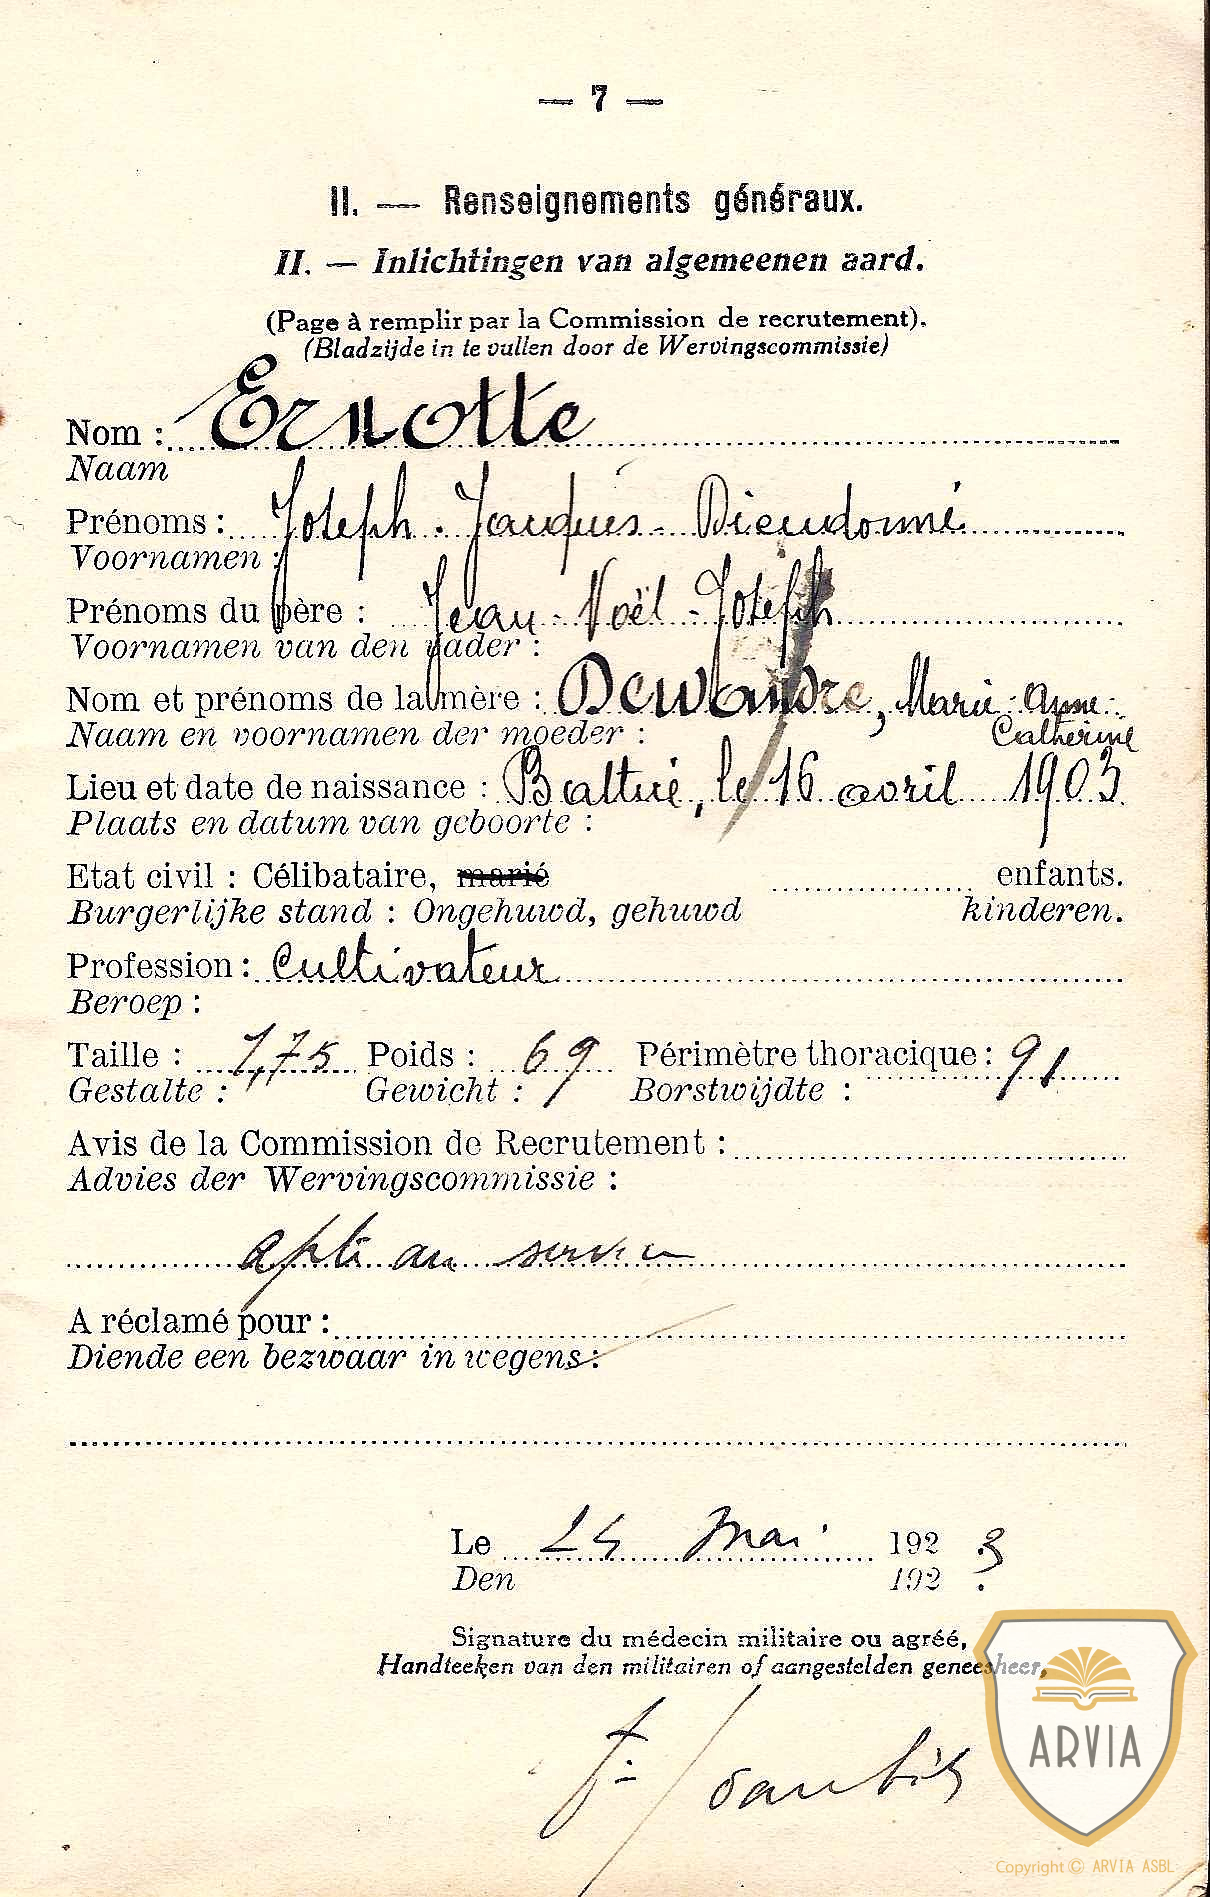 — 7 —
II. — Renseignements généraux.
II. — Inlichtingen van algemeenen aard.
(Page à remplir par la Commission de recrutement).
(Bladzijde in te vullen door de Wervingscommissie)
Nom : Ernotte
Naam
Prénoms : Joseph - Jacques - Dieudonné
Voornamen :
Prénoms du père : Jean - Noël - Joseph
Voornamen van den vader :
Nom et prénoms de la mère : Dewandre, Marie - Anne -
Naam en voornamen der moeder : Catherine
Lieu et date de naissance : , le 16 avril 1903
Plaats en datum van geboorte :
Etat civil : Célibataire, marié enfants.
Burgerlijke stand : Ongehuwd, gehuwd kinderen.
Profession : Cultivateur
Beroep :
Taille : 1,75 Poids : 69 Périmètre thoracique : 91
Gestalte : Gewicht : Borstwijdte :
Avis de la Commission de Recrutement :
Advies der Wervingscommissie :
apte au service
A réclamé pour :
Diende een bezwaar in wegens :
Le 24 Mai 1923
Den 192 .
Signature du médecin militaire ou agréé,
Handteeken van den militairen of aangestelden geneesheer,
ARVIA
Copyright © ARVIA ASBL